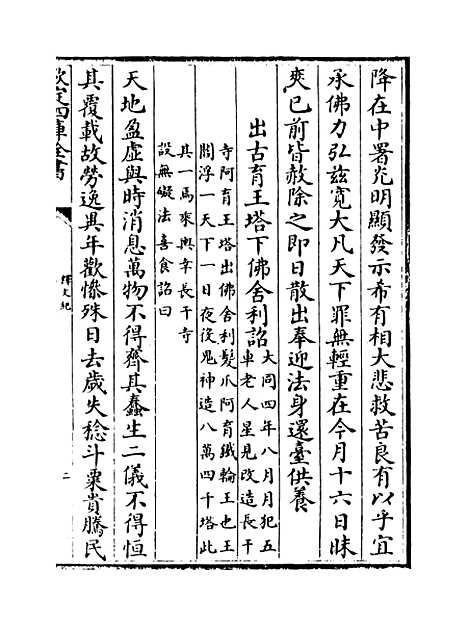 降在中署光明顯發示希有相大悲救苦良有以乎宜
承佛力弘兹寬大凡天下罪無輕重在今月十六日昧
爽已前皆赦除之即日散出奉迎法身還臺供養
出古育王塔下佛舍利詔
大同四年八月月犯五
車老人星見改造長干
寺阿育王塔出佛舍利髮爪阿育鐵輪王也王
閻浮一天下一日夜役鬼神造八萬四千塔此
其一焉乗輿幸長干寺
設無礙法喜食詔曰
天地盈虛與時消息萬物不得齊其蠢生二儀不得恒
其覆載故勞逸異年歡慘殊日去歲失稔斗粟貴騰民
欽定四庫全書
釋文紀
二